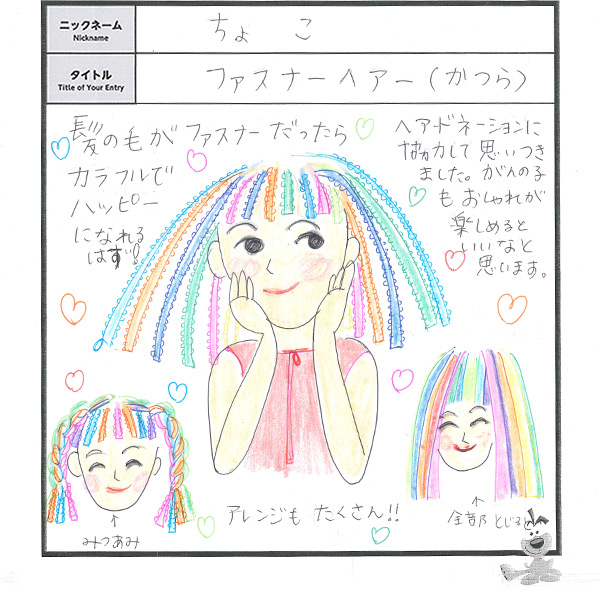 ニックネーム
Nickname
ちょこ
タイトル
Title of Your Entry
ファスナーヘアー(かつら)
髪の毛がファスナーだったら
カラフルで
ハッピー
になれる
はず!
ヘアードネーションに
協力して思いつき
ました。がんの子
もおしゃれが
楽しめると
いいなと
思います。
アレンジもたくさん!!
↑
みつあみ
↑
全部とじると